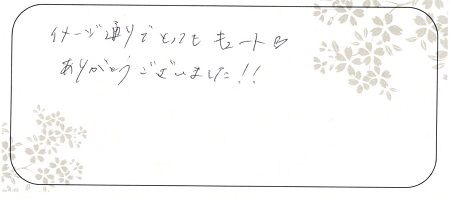 イメージ通りでとってもキュート♡
ありがとうございました!!